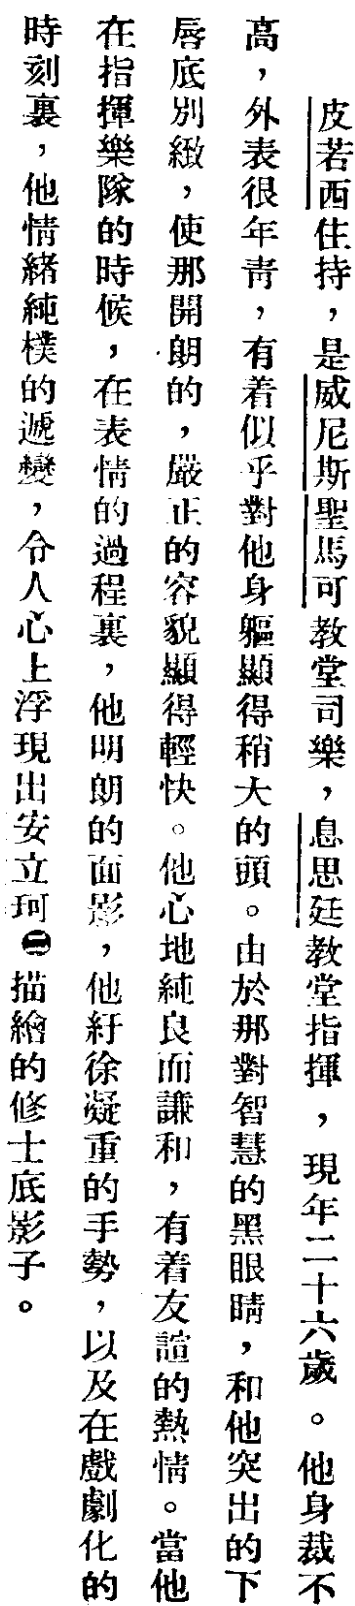 皮若西住持，是威尼斯聖馬可教堂司樂，息思廷教堂指揮，現年二十六歲。他身裁不
高，外表很年靑，有着似乎對他身軀顯得稍大的頭。由於那對智慧的黑眼睛，和他突出的下
唇底別緻，使那開朗的，嚴正的容貌顯得輕快。他心地純良而謙和，有着友誼的熱情。當他
在指揮樂隊的時候，在表情的過程裏，他明朗的面影，他紆徐凝重的手勢，以及在戲劇化的
時刻裏，他情緒純樸的遞變，令人心上浮現出安立珂㊁描繪的修士底影子。